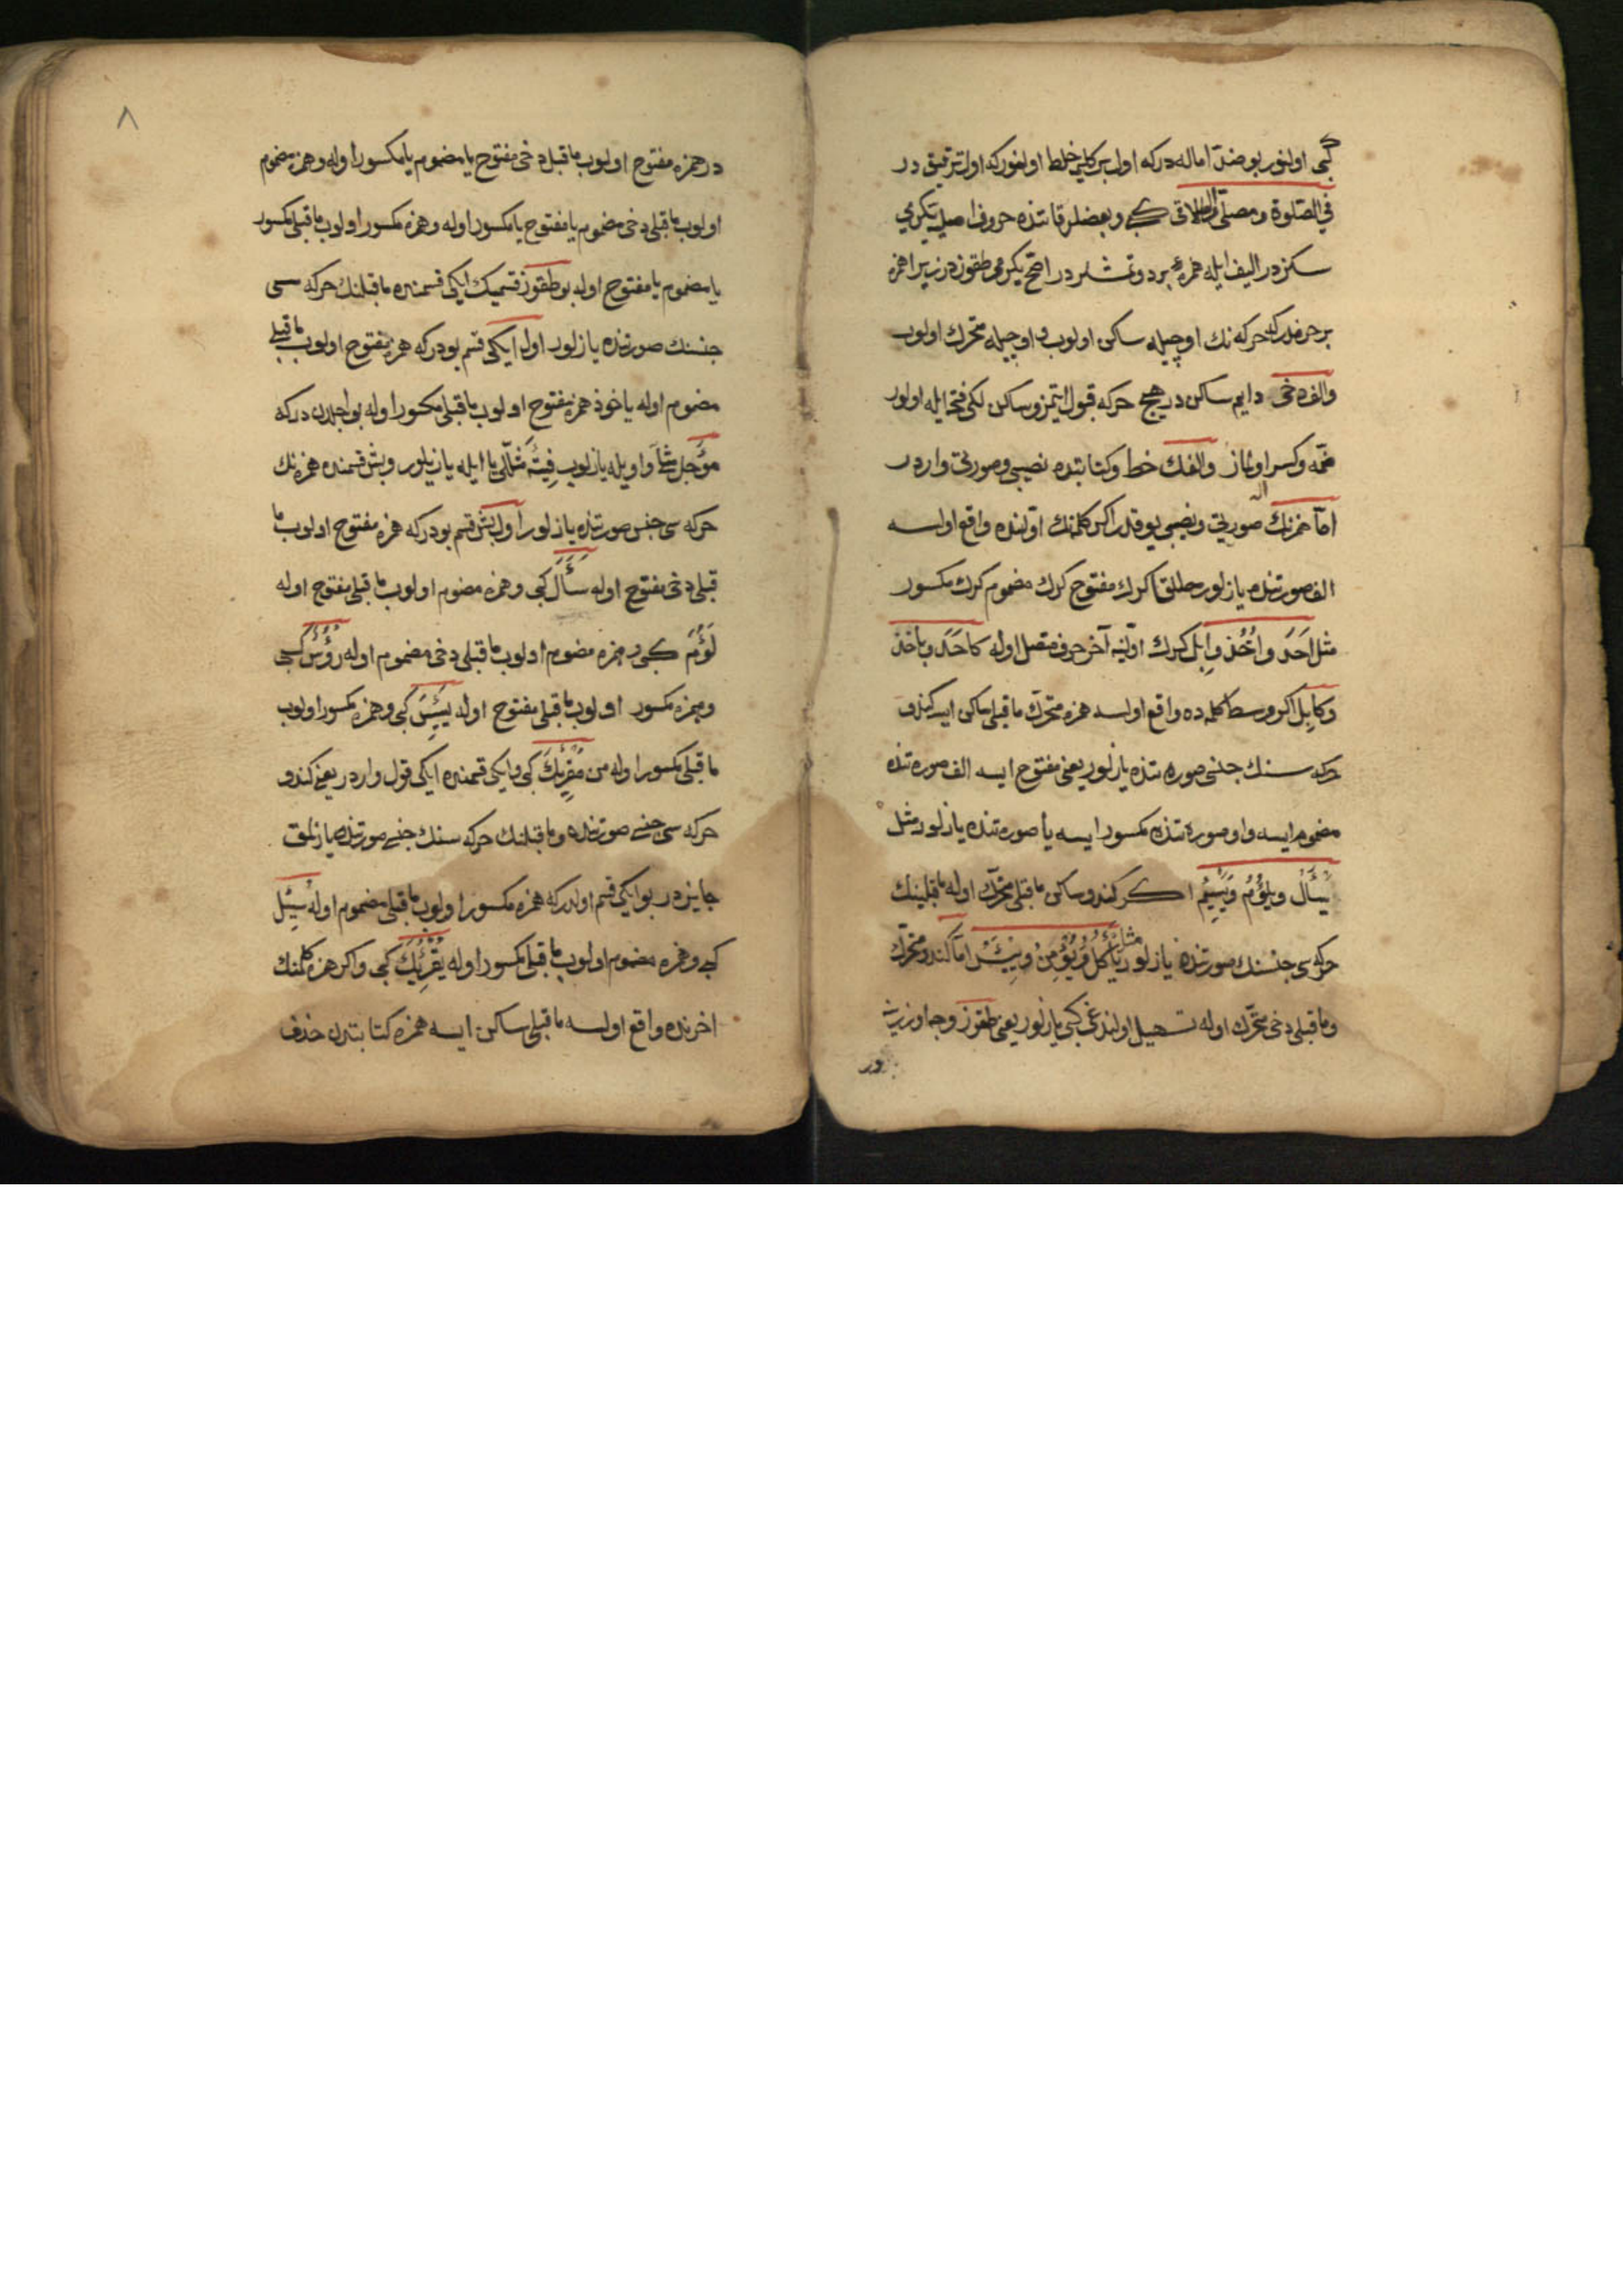 كبى اولنور بو ضدّ اماله دركه اول بركليه خلط اولنور كه اول ترقيق در
في الصّلوة ومصلّى والطلاق كبى وبعضلر قاتنده حروف اصليه يكرمى
سكزدر اليف ايله همزه بردر وتمشلردر اصح يكرمى طقوزدر زيرا همزه
بر حرفدركه حركه نك اوچيله ساكن اولوب واوچيله متحرك اولوب
والف دخى دايم ساكن در هيچ حركه قبول ايتمز وساكن لكى فتح ايله اولور
ضمّه وكسر اولماز والفك خط وكتابتده نصيبى وصورتى واردر
امّا همزنك صورتى ونصيبى يوقدر اكر كلمنك اوّلنده واقع اولسه
الف صورتنده يازلور مطلقا كرك مفتوح كرك مضموم كرك مكسور
مثل اَحَدَ واُخُذ واِبِل كرك اوّلنه آخر حرف متصل اوله كاحَدَ وبأخذ
وكابِل اكر وسط كلمه ده واقع اولسه همزه متحرّك ماقبلى ساكن ايسه كندو
حركه سنك جنسى صورتنده يازلور يعنى مفتوح ايسه الف صورتنده
مضموم ايسه واو صورتنده مكسور ايسه يا صورتنده يازلور مثل
يَسْأَلُ ويلؤُمُ ويَسْئِمُ اكر كندو ساكن ماقبلى متحرّك اوله ماقبلينك
حركه سى جنسنك صورتنده يازلور مثل يَأْكُلُ ويُؤْمِنُ وبِئْسَ امّا كندو متحرّك
وماقبلى دخى متحرّك اوله تسهيل اولندغى كبى يازلور يعنى طقوز وجه اوزرينه
در
٨
در همزه مفتوح اولوب ماقبلى دخى مفتوح يا مضموم يا مكسور اوله وهمزه مضموم
اولوب ماقبلى دخى مضموم يا مفتوح يا مكسور اوله وهمزه مكسور اولوب ماقبلى مكسور
يا مضموم يا مفتوح اوله بو طقوز قسمك ايكى قسمنده ماقبلنك حركه سى
جنسنك صورتنده يازلور اول ايكى قسم بودركه همزه مفتوح اولوب ماقبلى
مضموم اوله ياخوذ همزه مفتوح اولوب ماقبلى مكسور اوله بو اجلدن دركه
مؤجل واويله يازلوب فِئَة يا ايله يازيلور وبش قسمنده همزه نك
حركه سى جنسى صورتنده يازلور اول بش قسم بودركه همزه مفتوح اولوب ما
قبلى دخى مفتوح اوله سَأَلَ كبى وهمزه مضموم اولوب ماقبلى مفتوح اوله
لَؤُمَ كبى وهمزه مضموم اولوب ماقبلى دخى مضموم اوله رُؤُسٌ كبى
وهمزه مكسور اولوب ماقبلى مفتوح اوله يَئِسَ كبى وهمزه مكسور اولوب
ماقبلى مكسور اوله من مُقْرِئِكَ كبى وايكى قسمنده ايكى قول واردر يعنى كندو
حركه سى جنسى صورتنده وماقبلنك حركه سنك جنسى صورتنده يازلمق
جايزدر بو ايكى قسم اولدركه همزه مكسور اولوب ماقبلى مضموم اوله سُئِل
كبى وهمزه مضموم اولوب ماقبلى مكسور اوله يُقْرِئُكَ كبى واكر همزه كلمنك
اخرنده واقع اولسه ماقبلى ساكن ايسه همزه كتابتدن حذف